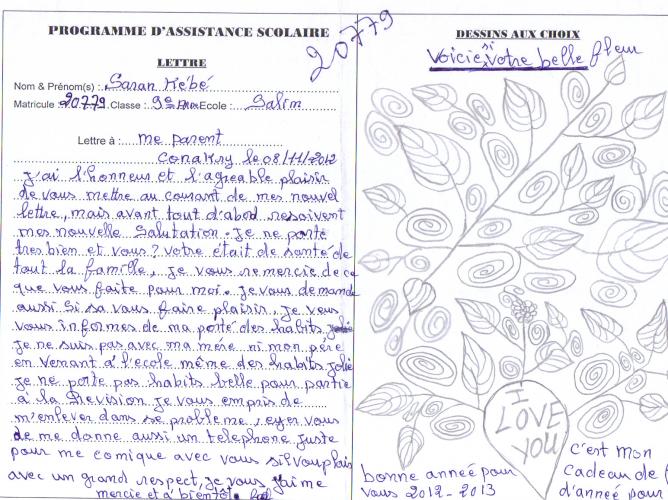 PROGRAMME D'ASSISTANCE SCOLAIRE
20779
LETTRE
Nom & Prénom(s) : Saran Kébé
Matricule : 20779 Classe : 9è Ecole : Salim
Lettre à : me parent
Conakry le 08/11/2012
J'ai l'honneur et l'agreable plaisir
de vous mettre au courant de mes nouvel
lettre, mais avant tout d'abord ressoivent
mes nouvelle Salutation. Je me porte
tres bien et vous? votre était de santé de
tout la famille, Je vous remercie de ce
que vous faite pour moi. Je vous demande
aussi Si sa vous faire plaisir, Je veus
vous informes de ma porté des habits
Je ne suis pas avec ma mére ni mon pére
en venant a l'ecole même des habits jolie
Je ne porte pas habits belle pour partie
a la Revision Je vous empris de
m'enlever dans se probleme, eyer vous
de me danne aussi un telephone Juste
pour me comique avec vous silvouplais
avec un grand respect, Je vous j'aime
mercie et a bientôt.
DESSINS AUX CHOIX
Voicie si votre belle fleur
I
LOVE
YOU
bonne anneé pour
vous 2012-2013
c'est mon
cadeau de
d'anneé pour